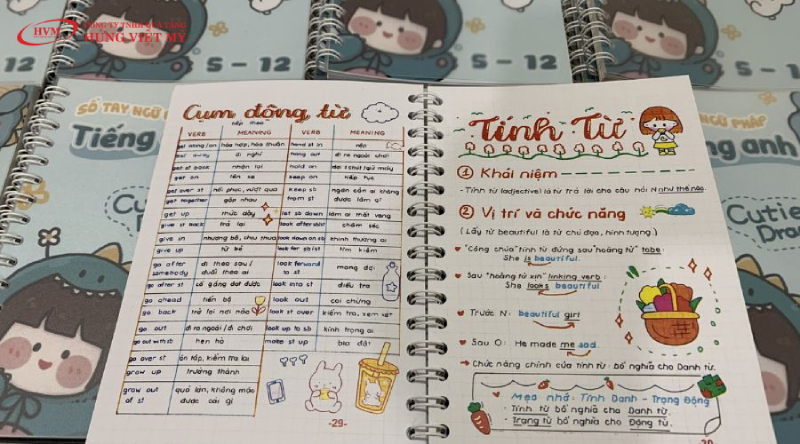 HVM
CÔNG TY TNHH QUÀ TẶNG
HƯNG VIỆT MỸ
5 - 12
5 - 12
SỔ TAY NGỮ
Tiếng
Cụm động từ
tiếp theo
VERB MEANING VERB MEANING
get along/on hòa hợp, hòa thuận hand st in nộp
get away đi nghỉ hang out đi ra ngoài chơi
get st back nhận lại hold on
get on lên xe keep on tiếp tục
get over st hồi phục, vượt qua keep st from st ngăn cản ai không được làm gì
get together gặp nhau
get up thức dậy let sb down làm ai thất vọng
give st back trả lại look after sb/st chăm sóc
give in nhượng bộ, chịu thua look down on sb khinh thường ai
give up từ bỏ look for sb/st tìm kiếm
go after somebody đi theo sau / đuổi theo ai look forward to st mong đợi
go after st cố gắng đạt được look into st điều tra
go ahead tiến bộ look out coi chừng
go back trở lại nơi nào look st over kiểm tra, xem xét
go out đi ra ngoài / đi chơi look up to sb kính trọng ai
go out with sb hẹn hò make st up bịa đặt
go over st ôn tập, kiểm tra lại
grow up trưởng thành
grow out of st quá lớn, không mặc được cái gì
-29-
Tính Từ
1 Khái niệm
- Tính từ (adjective) là từ trả lời cho câu hỏi N như thế nào.
2 Vị trí và chức năng
(Lấy từ beautiful là từ chỉ đạo, hình tượng)
"Công chúa" tính từ đứng sau "hoàng tử" tobe:
She is beautiful.
Sau "hoàng tử xịn" linking verb:
She looks beautiful
Trước N: beautiful girl
Sau O: He made me sad.
→ Chức năng chính của tính từ: bổ nghĩa cho Danh từ.
Mẹo nhớ: Tính Danh - Trạng Động
- Tính từ bổ nghĩa cho Danh từ.
- Trạng từ bổ nghĩa cho Động từ.
NGỮ PHÁP
ng anh
Cutie